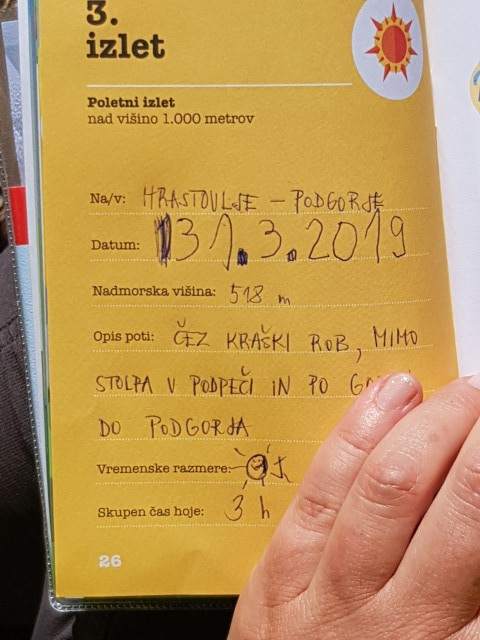 3.
izlet
Poletni izlet
nad višino 1.000 metrov
Na/v: HRASTOVLJE – PODGORJE
Datum: 31.3.2019
Nadmorska višina: 518 m
Opis poti: ČEZ KRAŠKI ROB, MIMO
STOLPA V PODPEČI IN PO
DO PODGORJA
Vremenske razmere:
Skupen čas hoje: 3 h
26